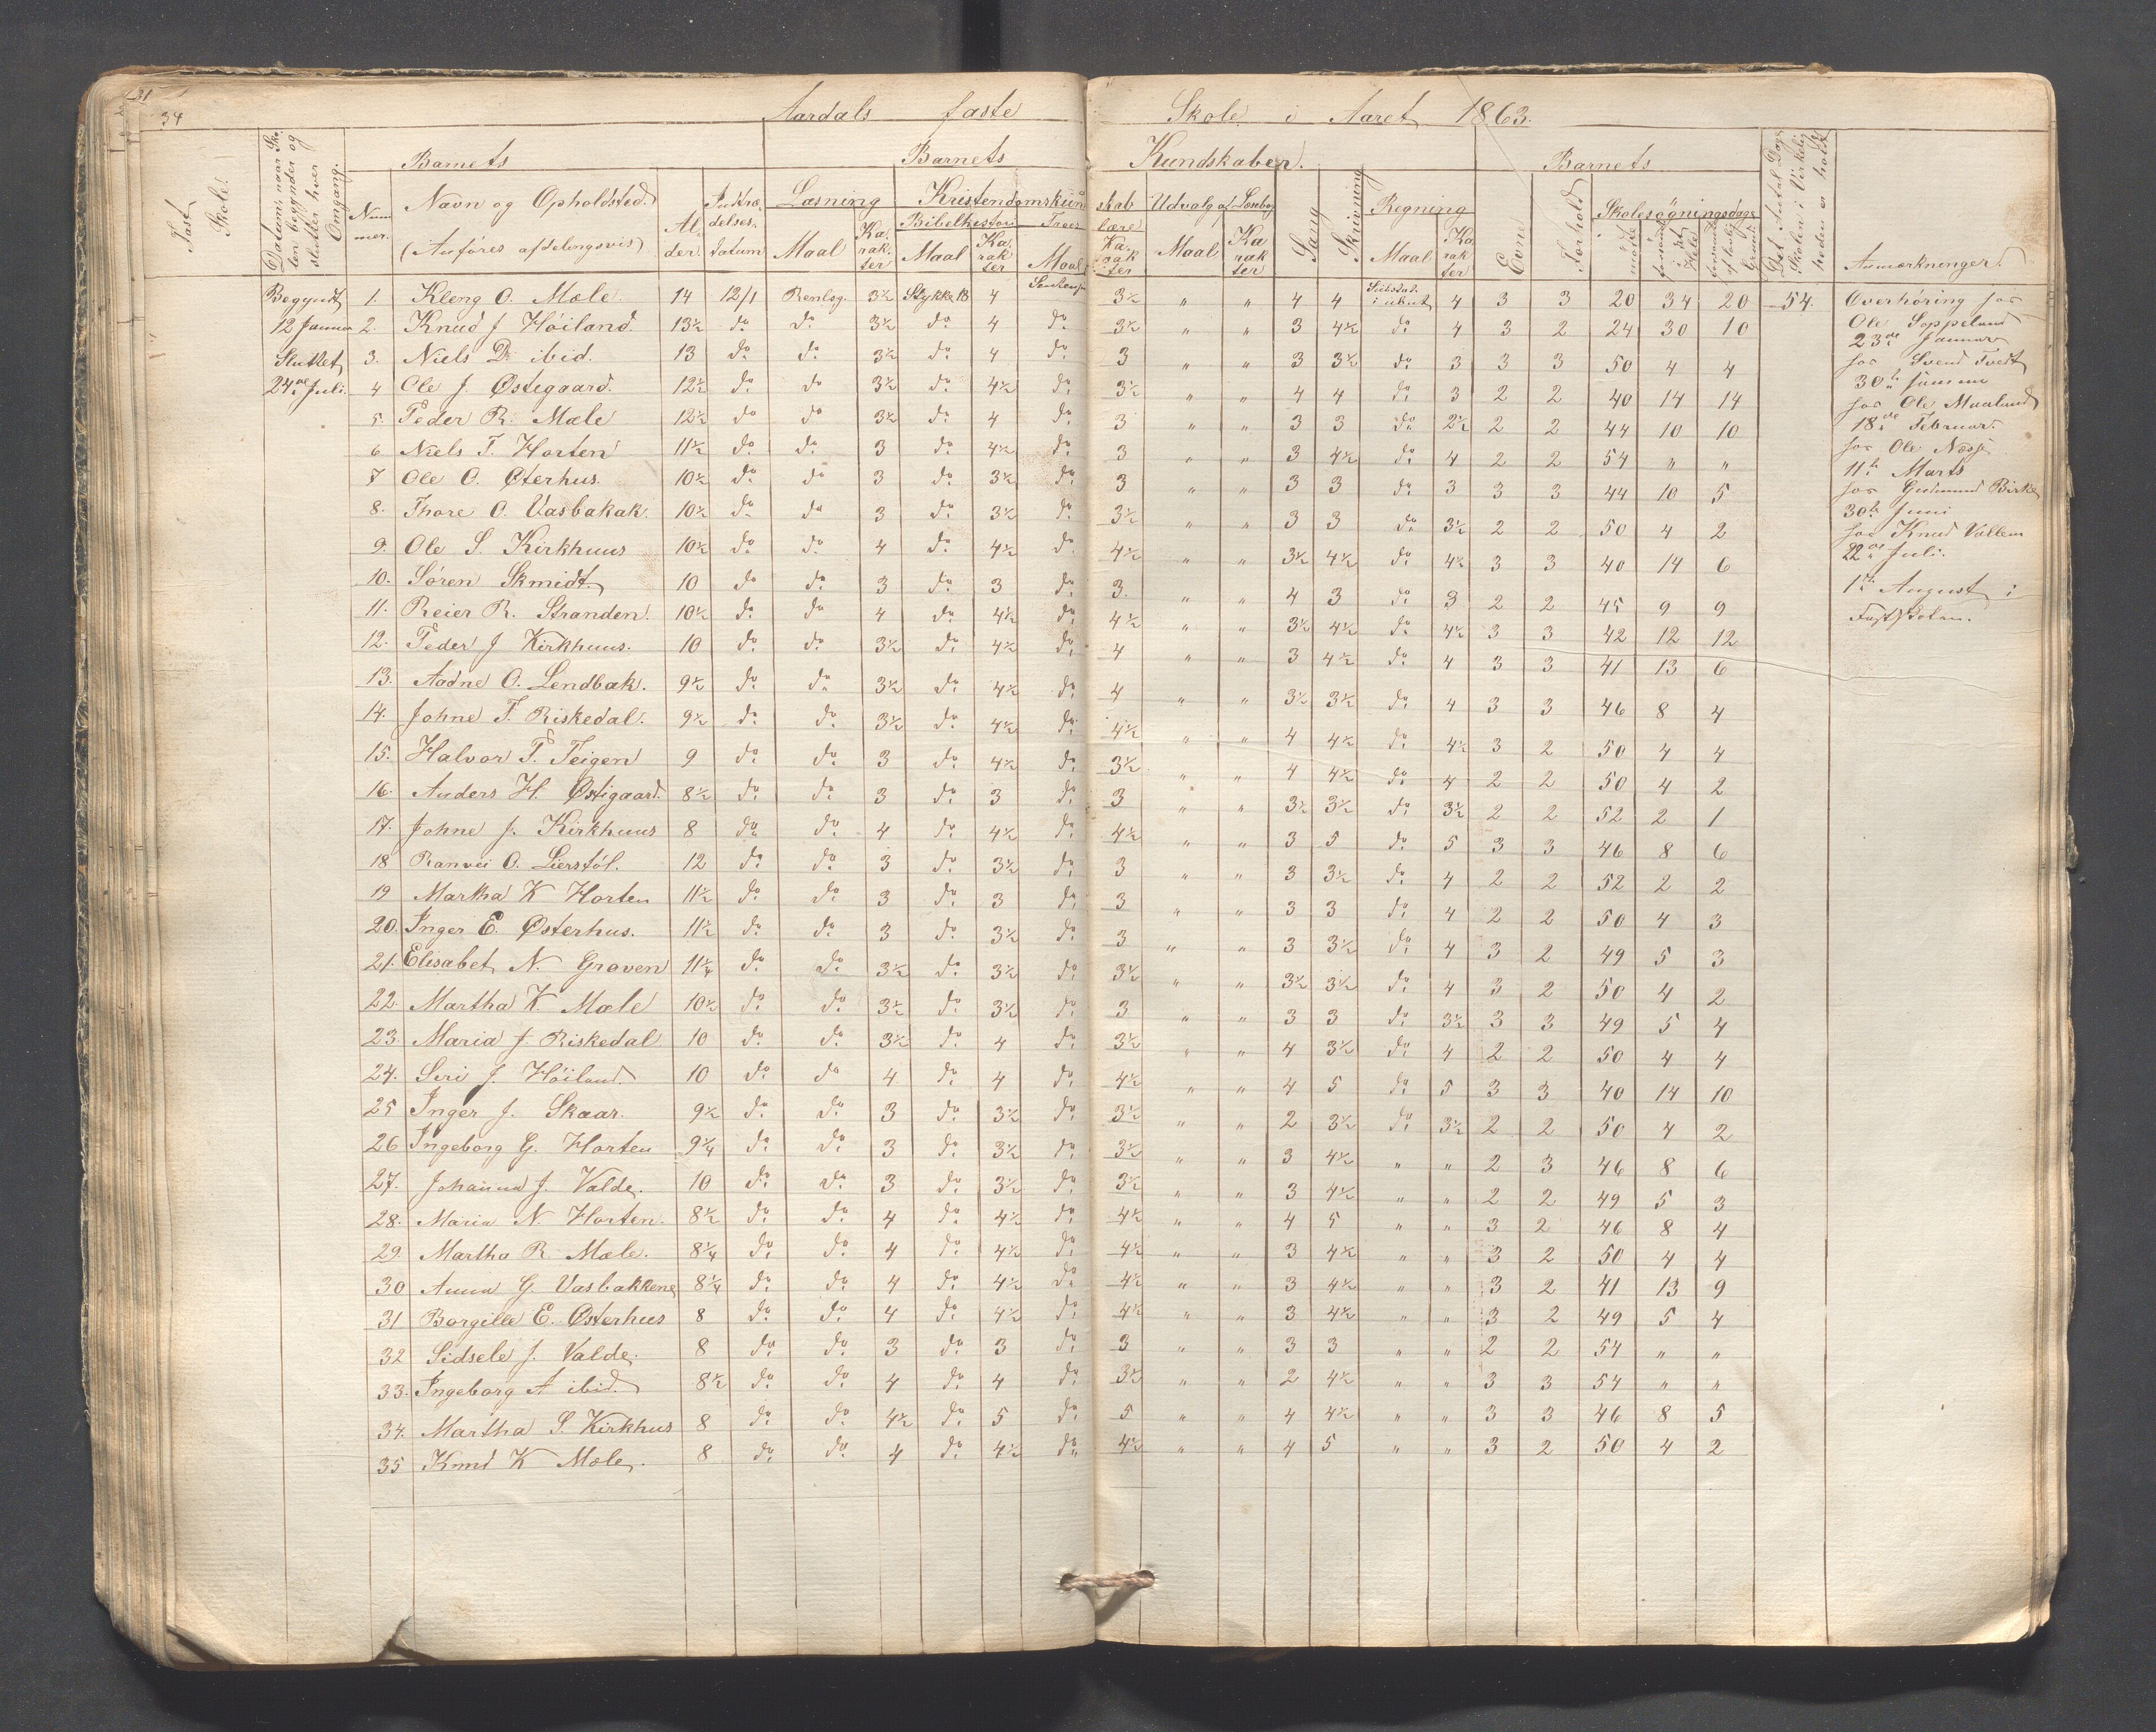 31
34
Aardals faste Skole i Aaret 1863.
Fast Skole.
Datum, naar Skolen begynder og slutter hver Omgang.
Nummer.
Barnets
Navn og Opholdsted.
(Anføres afdelingsvis)
Alder.
Indtrædelsesdatum
Barnets Kundskaber.
Læsning
Maal
Karakter
Kristendomskundskab
Bibelhistorie
Maal
Karakter
Troeslære
Maal
Karakter
Udvalg af Læsebog
Maal
Karakter
Sang
Skrivning
Regning
Maal
Karakter
Barnets
Evne
Forhold
Skolesøgningsdage
mødte
forsømte i det Hele
Det Antal Dage Skolen i Virkeligheden er holdt
Anmærkninger.
Begyndt 12 Januar
Sluttet 24de Juli.
1. Kleng O. Mæle. 14 12/1 Renlæsg. 3½ Stykke 18 4 3½ " " 4 4 4 3 3 20 34 20 54.
2. Knud J Høiland. 13½ do do 3½ do 4 do 3½ " " 3 4½ do 4 3 2 24 30 10
3. Niels D. ibid. 13 do do 3½ do 4 do 3 " " 3 3½ do 3 3 3 50 4 4
4 Ole J. Østegaard. 12½ do do 3½ do 4½ do 3½ " " 4 4 do 3 2 2 40 14 14
5. Peder R. Mæle 12½ do do 3½ do 4 do 3 " " 3 3 do 2½ 2 2 44 10 10
6 Niels T. Horten 11½ do do 3 do 4½ do 3 " " 3 4½ do 4 2 2 54 " "
7 Ole O. Østerhus. 10½ do do 3 do 3½ do 3 " " 3 3 do 3 3 3 44 10 5
8. Thore O. Vasbakak. 10½ do do 3 do 3½ do 3½ " " 3 3 do 3½ 2 2 50 4 2
9. Ole S. Kirkhuus 10½ do do 4 do 4½ do 4½ " " 3½ 4½ do 4½ 3 3 40 14 6
10. Søren Skmidt 10 do do 3 do 3 do 3. " " 4 3 do 3 2 2 45 9 9
11. Reier R. Stranden. 10½ do do 4 do 4½ do 4½ " " 3½ 4½ do 4½ 3 3 42 12 12
12. Peder J Kirkhuus. 10 do do 3½ do 4½ do 4 " " 3 4½ do 4 3 3 41 13 6
13. Aadne O. Lendbak. 9½ do do 3½ do 4½ do 4 " " 3½ 3½ do 4 3 3 46 8 4
14. Johne T. Riskedal. 9½ do do 3½ do 4½ do 4½ " " 4 4½ do 4½ 3 2 50 4 4
15. Halvor T. Teigen 9 do do 3 do 4½ do 3½ " " 4 4½ do 4 2 2 50 4 2
16. Anders H. Østigaard. 8½ do do 3 do 3 do 3 " " 3½ 3½ do 3½ 2 2 52 2 1
17. Johne J. Kirkhuus 8 do do 4 do 4½ do 4½ " " 3 5 do 5 3 3 46 8 6
18 Ranvei O. Lierstøl. 12 do do 3 do 3½ do 3 " " 3 3½ do 4 2 2 52 2 2
19 Martha K Horten 11½ do do 3 do 3 do 3 " " 3 3 do 4 2 2 50 4 3
20. Inger E. Østerhus. 11½ do do 3 do 3½ do 3 " " 3 3½ do 4 3 2 49 5 3
21. Elisabet N. Graven 11¼ do do 3½ do 3½ do 3½ " " 3½ 3½ do 4 3 2 50 4 2
22. Martha K. Mæle 10½ do do 3½ do 3½ do 3 " " 3 3 do 3½ 3 3 49 5 4
23. Maria J. Riskedal. 10 do do 3½ do 4 do 3½ " " 4 3½ do 4 2 2 50 4 4
24. Siri J. Høiland. 10 do do 4 do 4 do 4½ " " 4 5 do 5 3 3 40 14 10
25 Inger J. Skaar. 9½ do do 3 do 3½ do 3½ " " 2 3½ do 3½ 2 2 50 4 2
26 Ingeborg G. Horten 9¼ do do 3 do 3½ do 3½ " " 3 4½ " " 2 3 46 8 6
27. Johanna J. Valde. 10 do do 3 do 3½ do 3½ " " 3 4½ " " 2 2 49 5 3
28. Maria N. Horten. 8½ do do 4 do 4½ do 4½ " " 4 5 " " 3 2 46 8 4
29 Martha R. Mæle. 8¼ do do 4 do 4½ do 4½ " " 3 4½ " " 3 2 50 4 4
30 Anna G. Vasbakkene 8¼ do do 4 do 4½ do 4½ " " 3 4½ " " 3 2 41 13 9
31 Borgille E. Østerhus 8 do do 4 do 4½ do 4½ " " 3 4½ " " 3 2 49 5 4
32 Sidsele J. Valde. 8 do do 3 do 3 do 3 " " 3 3 " " 2 2 54 " "
33. Ingeborg A ibid. 8½ do do 4 do 4 do 3½ " " 2 4½ " " 3 3 54 " "
34. Martha S. Kirkhus 8 do do 4½ do 5 do 5 " " 4 4½ " " 3 3 46 8 5
35 Knud K Mæle. 8 do do 4 do 4½ do 4½ " " 4 5 " " 3 2 50 4 2
Overhøring hos
Ole Soppeland
23de Januar
hos Svend Tvedt
30te samme
hos Ole Maaland
18de Februar.
hos Ole Næsse
11te Marts
hos Gudmund Birke
30te Juni
hos Knud Vallem
22de Juli.
1ste August i
Fastskolen.